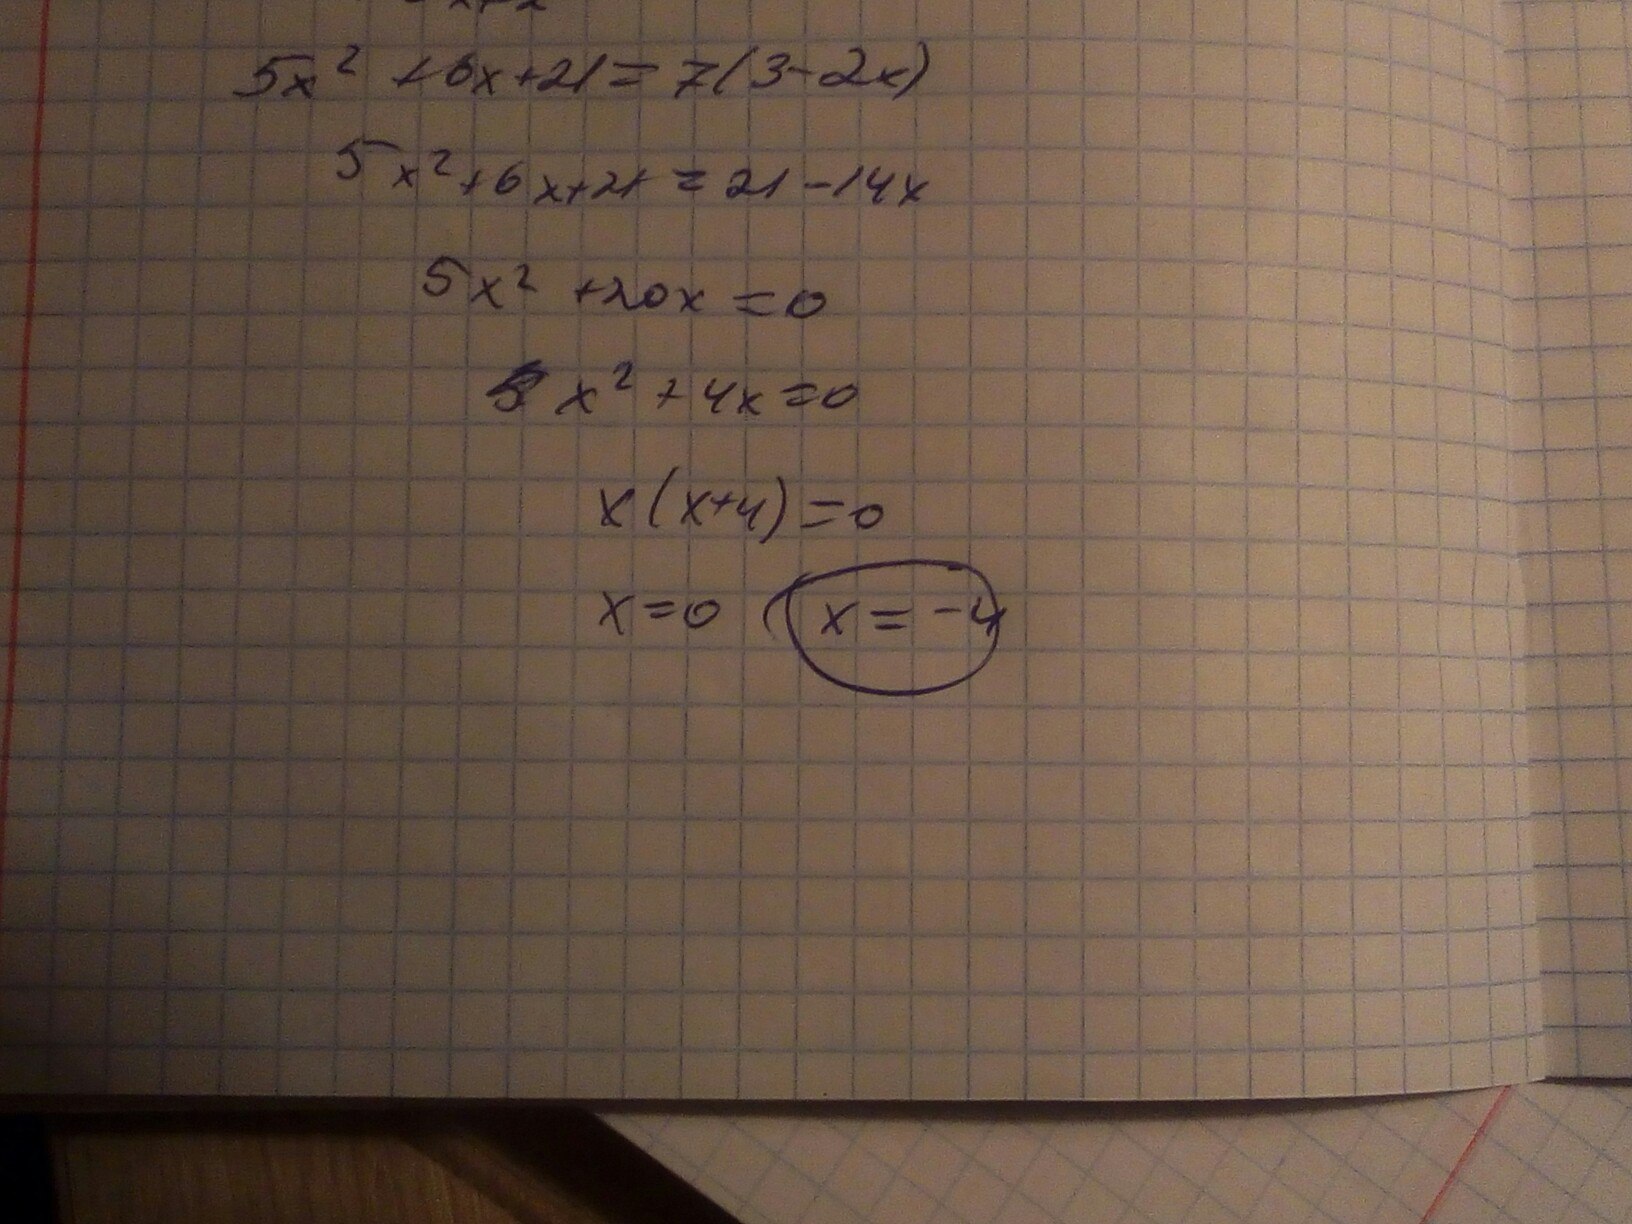 5x² +6x+21=7(3-2x)
5x²+6x+21=21-14x
5x² +20x=0
x²+4x=0
x(x+4)=0
x=0 x=-4